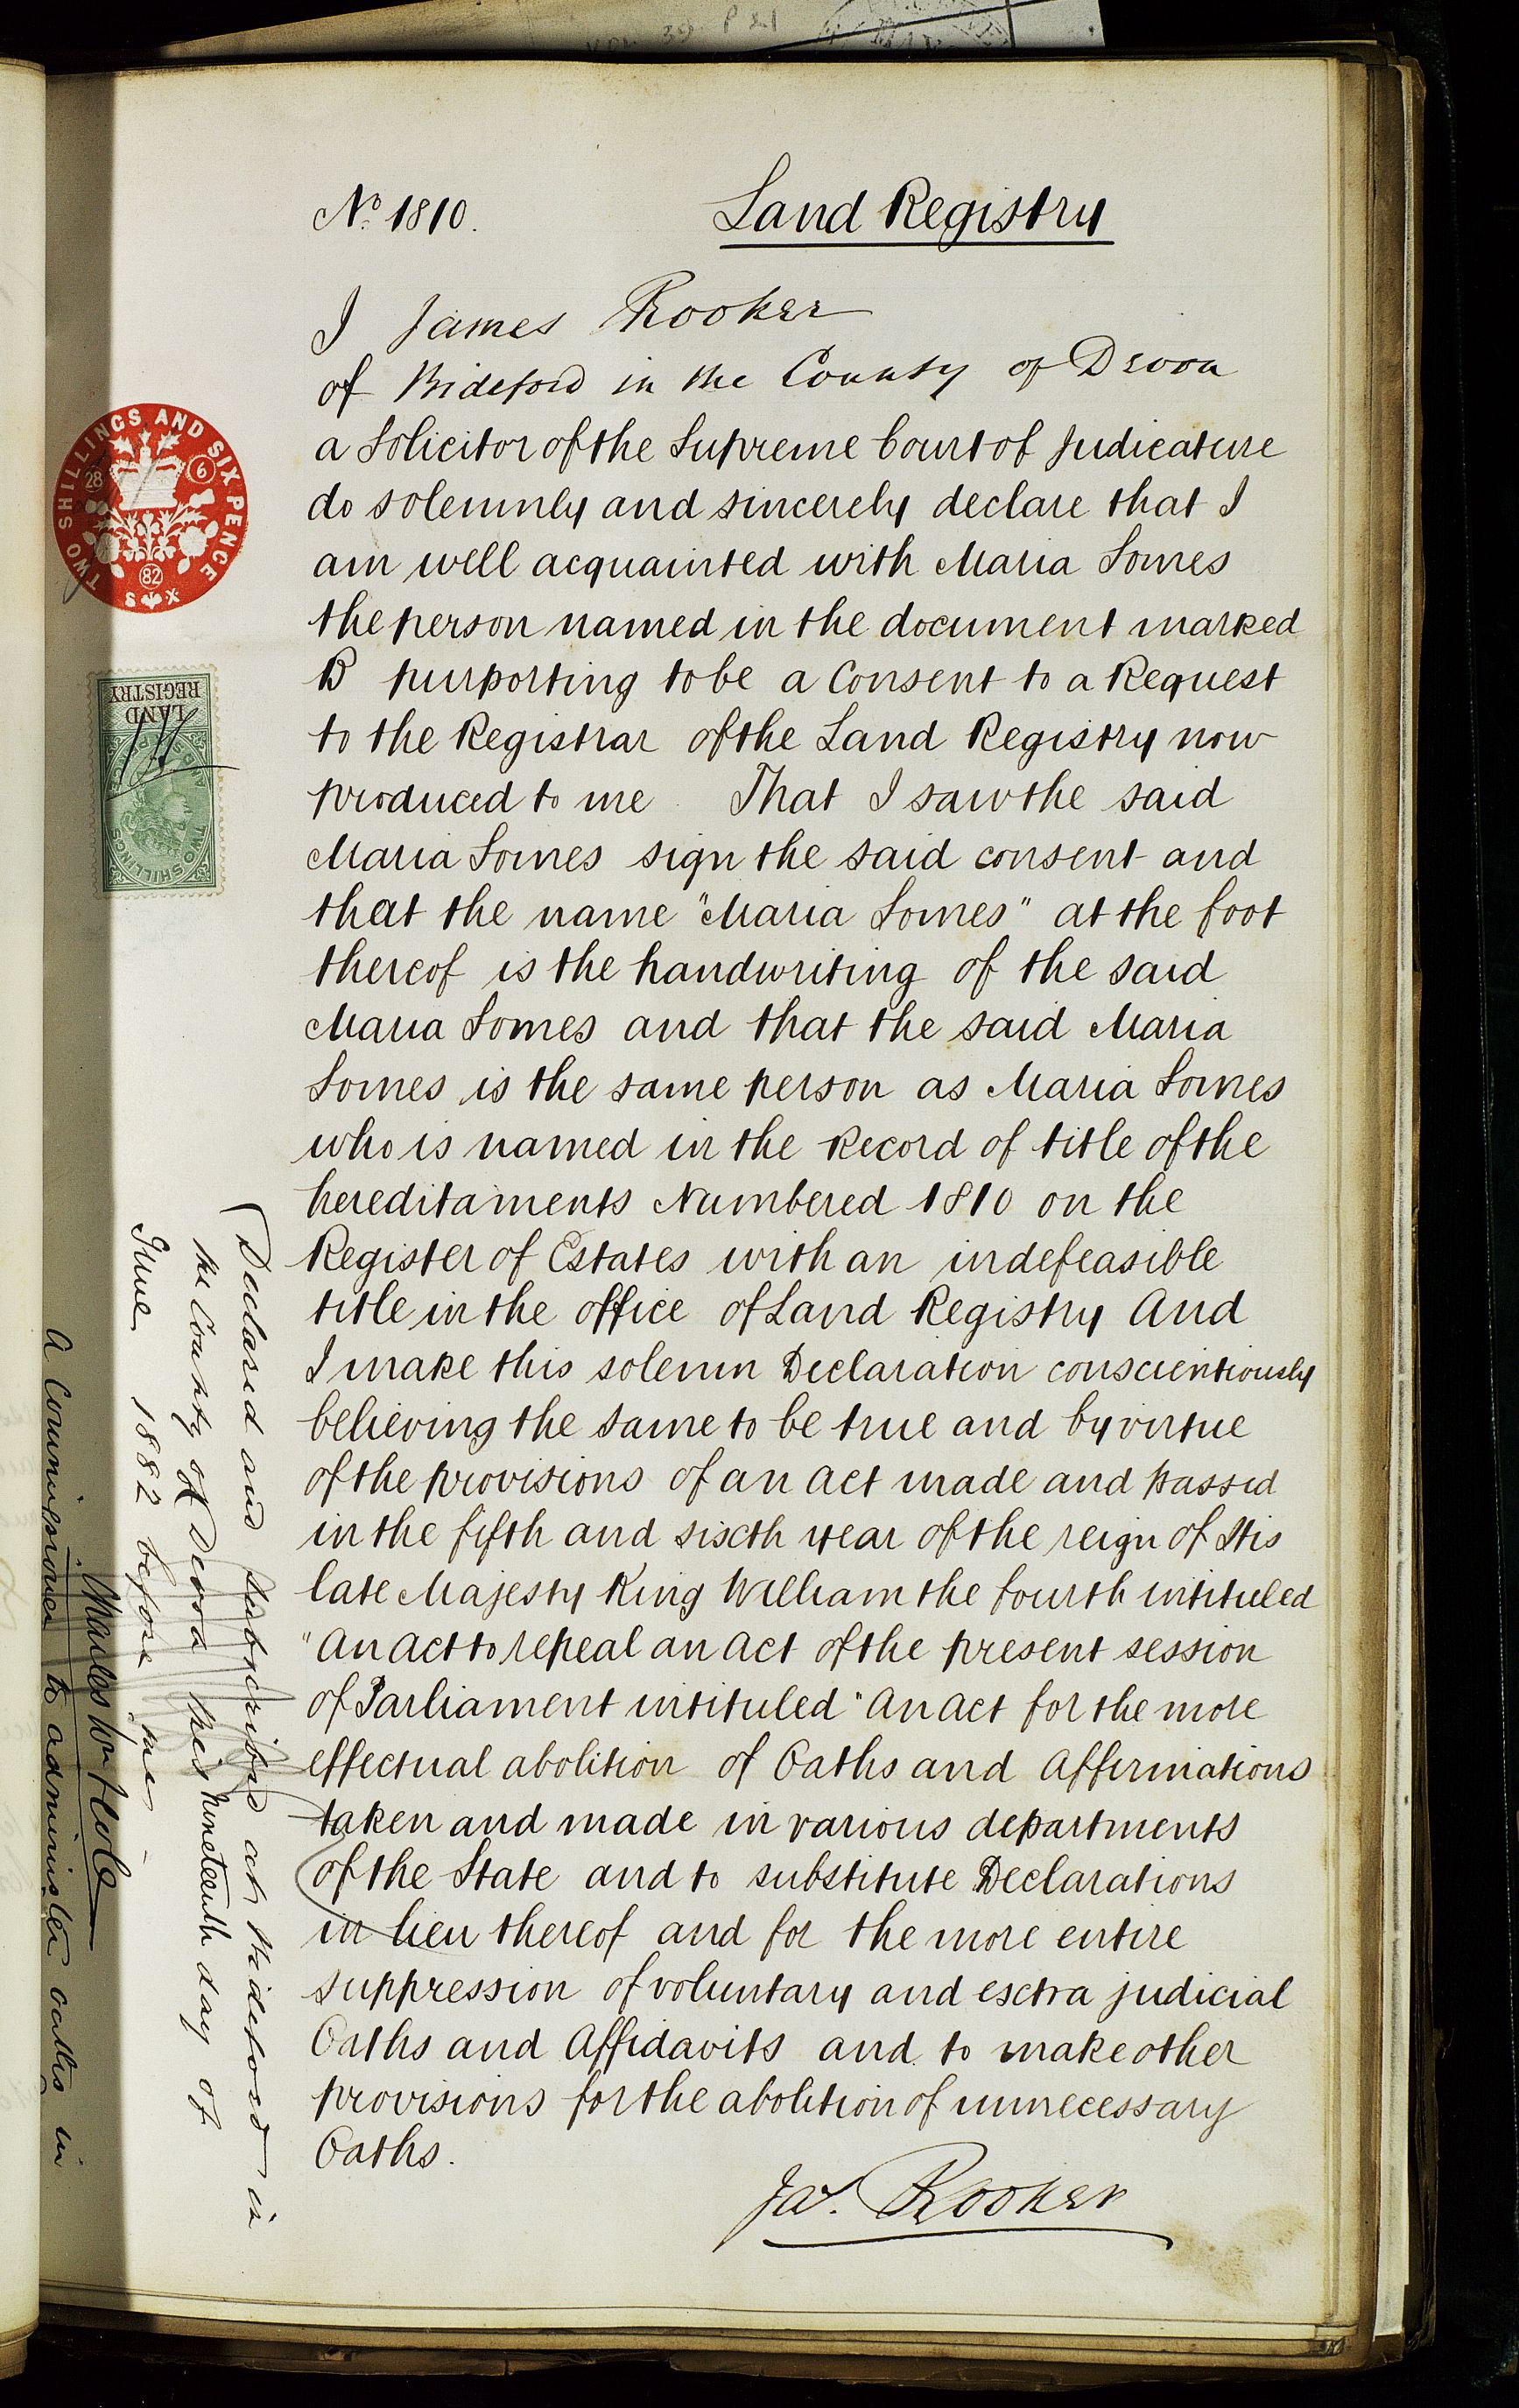 No. 1810.
Land Registry
I James Rooker
of Bideford in the County of Devon
a Solicitor of the Supreme Court of Judicature
do solemnly and sincerely declare that I
am well acquainted with Maria Somes
the person named in the document marked
B purporting to be a Consent to a Request
to the Registrar of the Land Registry now
produced to me That I saw the said
Maria Somes sign the said consent and
that the name "Maria Somes" at the foot
thereof is the handwriting of the said
Maria Somes and that the said Maria
Somes is the same person as Maria Somes
who is named in the Record of title of the
hereditaments Numbered 1810 on the
Register of Estates with an indefeasible
title in the office of Land Registry And
I make this solemn Declaration conscientiously
believing the same to be true and by virtue
of the provisions of an act made and passed
in the fifth and sixth year of the reign of His
late Majesty King William the fourth intituled
"An act to repeal an act of the present session
of Parliament intituled "An Act for the more
effectual abolition of Oaths and Affirmations
taken and made in various departments
of the State and to substitute Declarations
in lieu thereof and for the more entire
suppression of voluntary and extra judicial
Oaths and Affidavits and to make other
provisions for the abolition of unnecessary
Oaths.
Jas. Rooker
Declared and Subscribed at Bideford in
the County of Devon this nineteenth day of
June 1882 before me
A Commissioner to administer oaths in
TWO SHILLINGS AND SIX PENCE
28
6
82
LAND
REGISTRY
TWO SHILLINGS